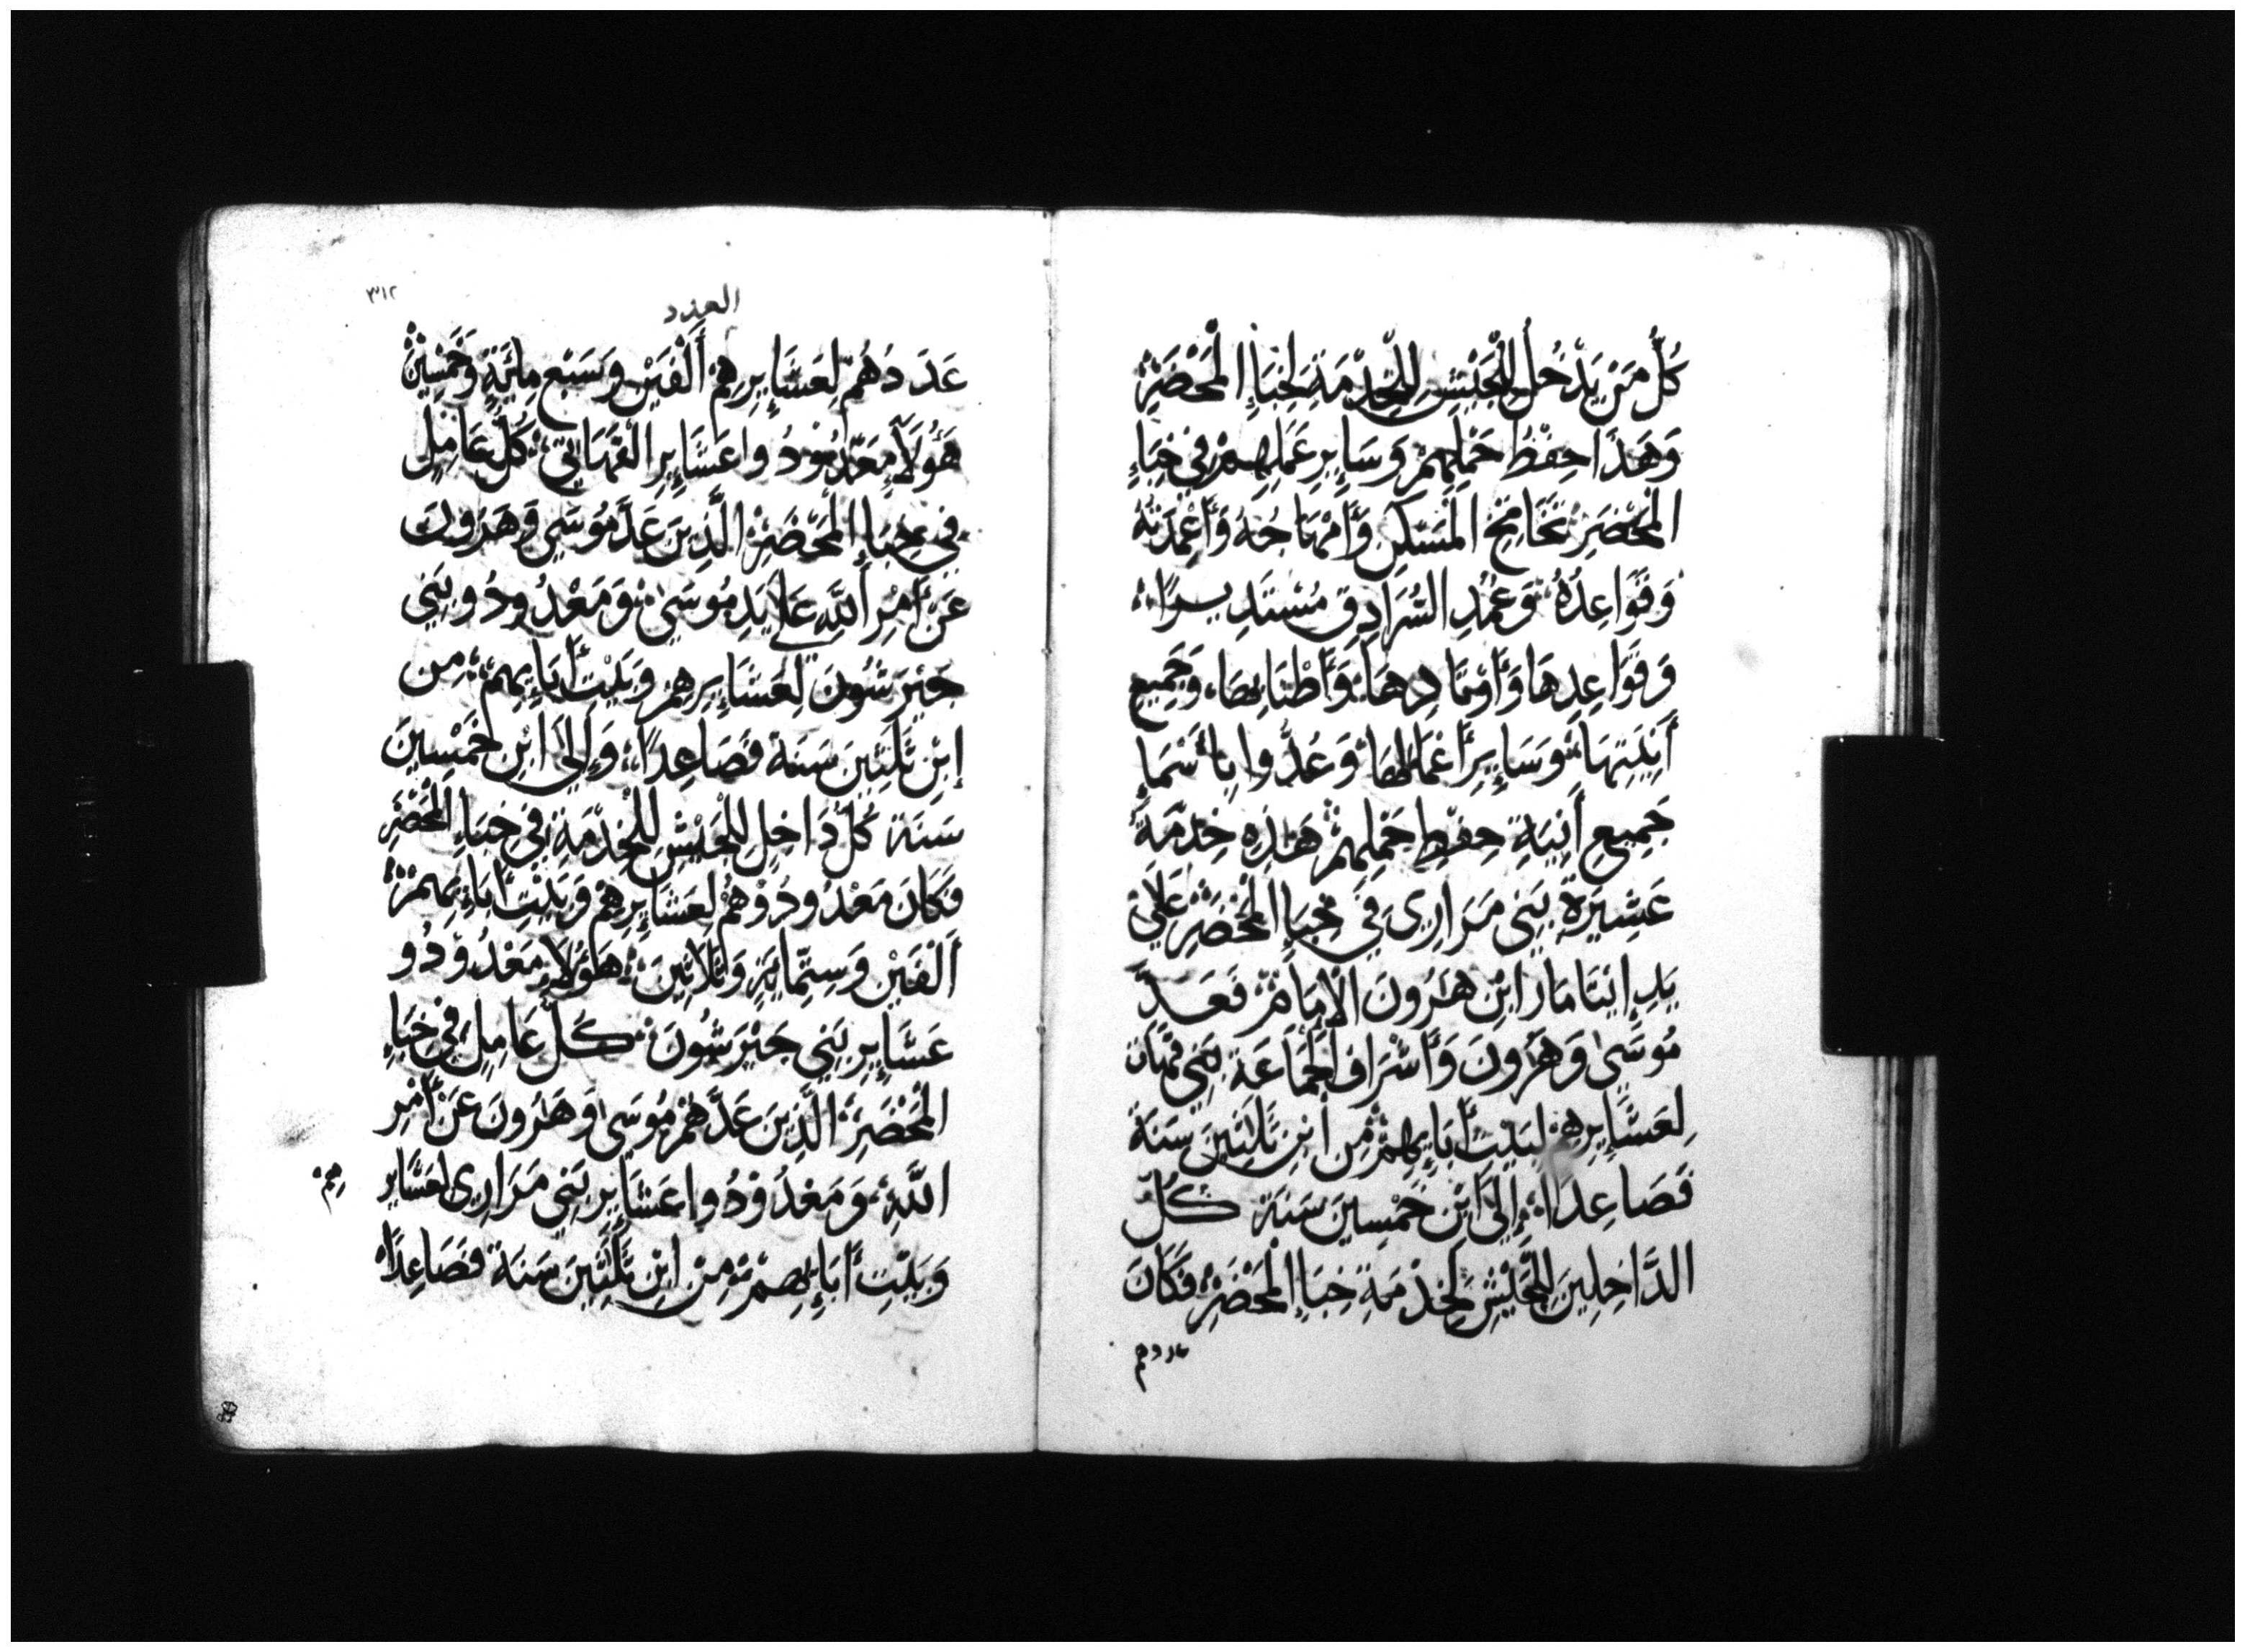 كُلُّ مَنْ يَدْخُلُ لِلْجَيْشِ لِلْخِدْمَةِ لِخِبَاءِ الْمَحْضَرِ
وَهَذَا حِفْظُ حَمْلِهِمْ وَسَايِرِ عَمَلِهِمْ فِي خِبَاءِ
الْمَحْضَرِ تَخَاتِجُ الْمَسْكَنِ وَأَمْهَاجُهُ وَأَعْمِدَتُهُ
وَقَوَاعِدُهُ وَعُمُدِ السُّرَادِقِ مُسْتَدِيرًا
وَقَوَاعِدِهَا وَأَوْتَادِهَا وَأَطْنَابِهَا وَجَمِيعِ
أَنِيَتِهَا وَسَايِرِ أَعْمَالِهَا وَعُدُّوا بِأَسْمَاءِ
جَمِيعِ أَنِيَةِ حِفْظِ حَمْلِهِمْ هَذِهِ خِدْمَةُ
عَشِيرَةِ بَنِي مَرَارِي فِي خِبَاءِ الْمَحْضَرِ عَلَى
يَدِ إِيتَامَارَ ابْنِ هَرُونَ الْإِمَامِ فَعَدَّ
مُوسَى وَهَرُونَ وَأَشْرَافُ الْجَمَاعَةِ بَنِي قَهَاتَ
لِعَشَايِرِهِمْ لِبَيْتِ أَبَايِهِمْ مِنِ ابْنِ ثَلَثِينَ سَنَةً
فَصَاعِدًا وَإِلَى ابْنِ خَمْسِينَ سَنَةً كُلُّ
الدَّاخِلِينَ لِلْجَيْشِ لِخِدْمَةِ خِبَاءِ الْمَحْضَرِ فَكَانَ
عددهم
٣١٢
العدد
عَدَدَهُمْ لِعَشَايِرِهِمْ أَلْفَيْنِ وَسَبْعِ مِايَةٍ وَخَمْسِينَ
هَؤُلَاءِ مَعْدُودُوا عَشَايِرِ الْقَهَاتِي كُلُّ عَامِلٍ
فِي خِبَاءِ الْمَحْضَرِ الَّذِينَ عَدَّ مُوسَى وَهَرُونَ
عَنْ أَمْرِ اللَّهِ عَلَى يَدِ مُوسَى وَمَعْدُودُو بَنِي
جَيْرَشُونَ لِعَشَايِرِهِمْ وَبَيْتِ أَبَايِهِمْ مِنِ
ابْنِ ثَلَثِينَ سَنَةً فَصَاعِدًا وَإِلَى ابْنِ خَمْسِينَ
سَنَةً كُلُّ دَاخِلٍ لِلْجَيْشِ لِلْخِدْمَةِ فِي خِبَاءِ الْمَحْضَرِ
فَكَانَ مَعْدُودُوهُمْ لِعَشَايِرِهِمْ وَبَيْتِ أَبَايِهِمْ
أَلْفَيْنِ وَسِتَّمِايَةٍ وَثَلَاثِينَ هَؤُلَاءِ مَعْدُودُو
عَشَايِرِ بَنِي جَيْرَشُونَ كُلُّ عَامِلٍ فِي خِبَاءِ
الْمَحْضَرِ الَّذِينَ عَدَّهُمْ مُوسَى وَهَرُونَ عَنْ أَمْرِ
اللَّهِ وَمَعْدُودُوا عَشَايِرِ بَنِي مَرَارِي لِعَشَايِرِ
هِمْ
وَبَيْتِ أَبَايِهِمْ مِنِ ابْنِ ثَلَثِينَ سَنَةً فَصَاعِدًا